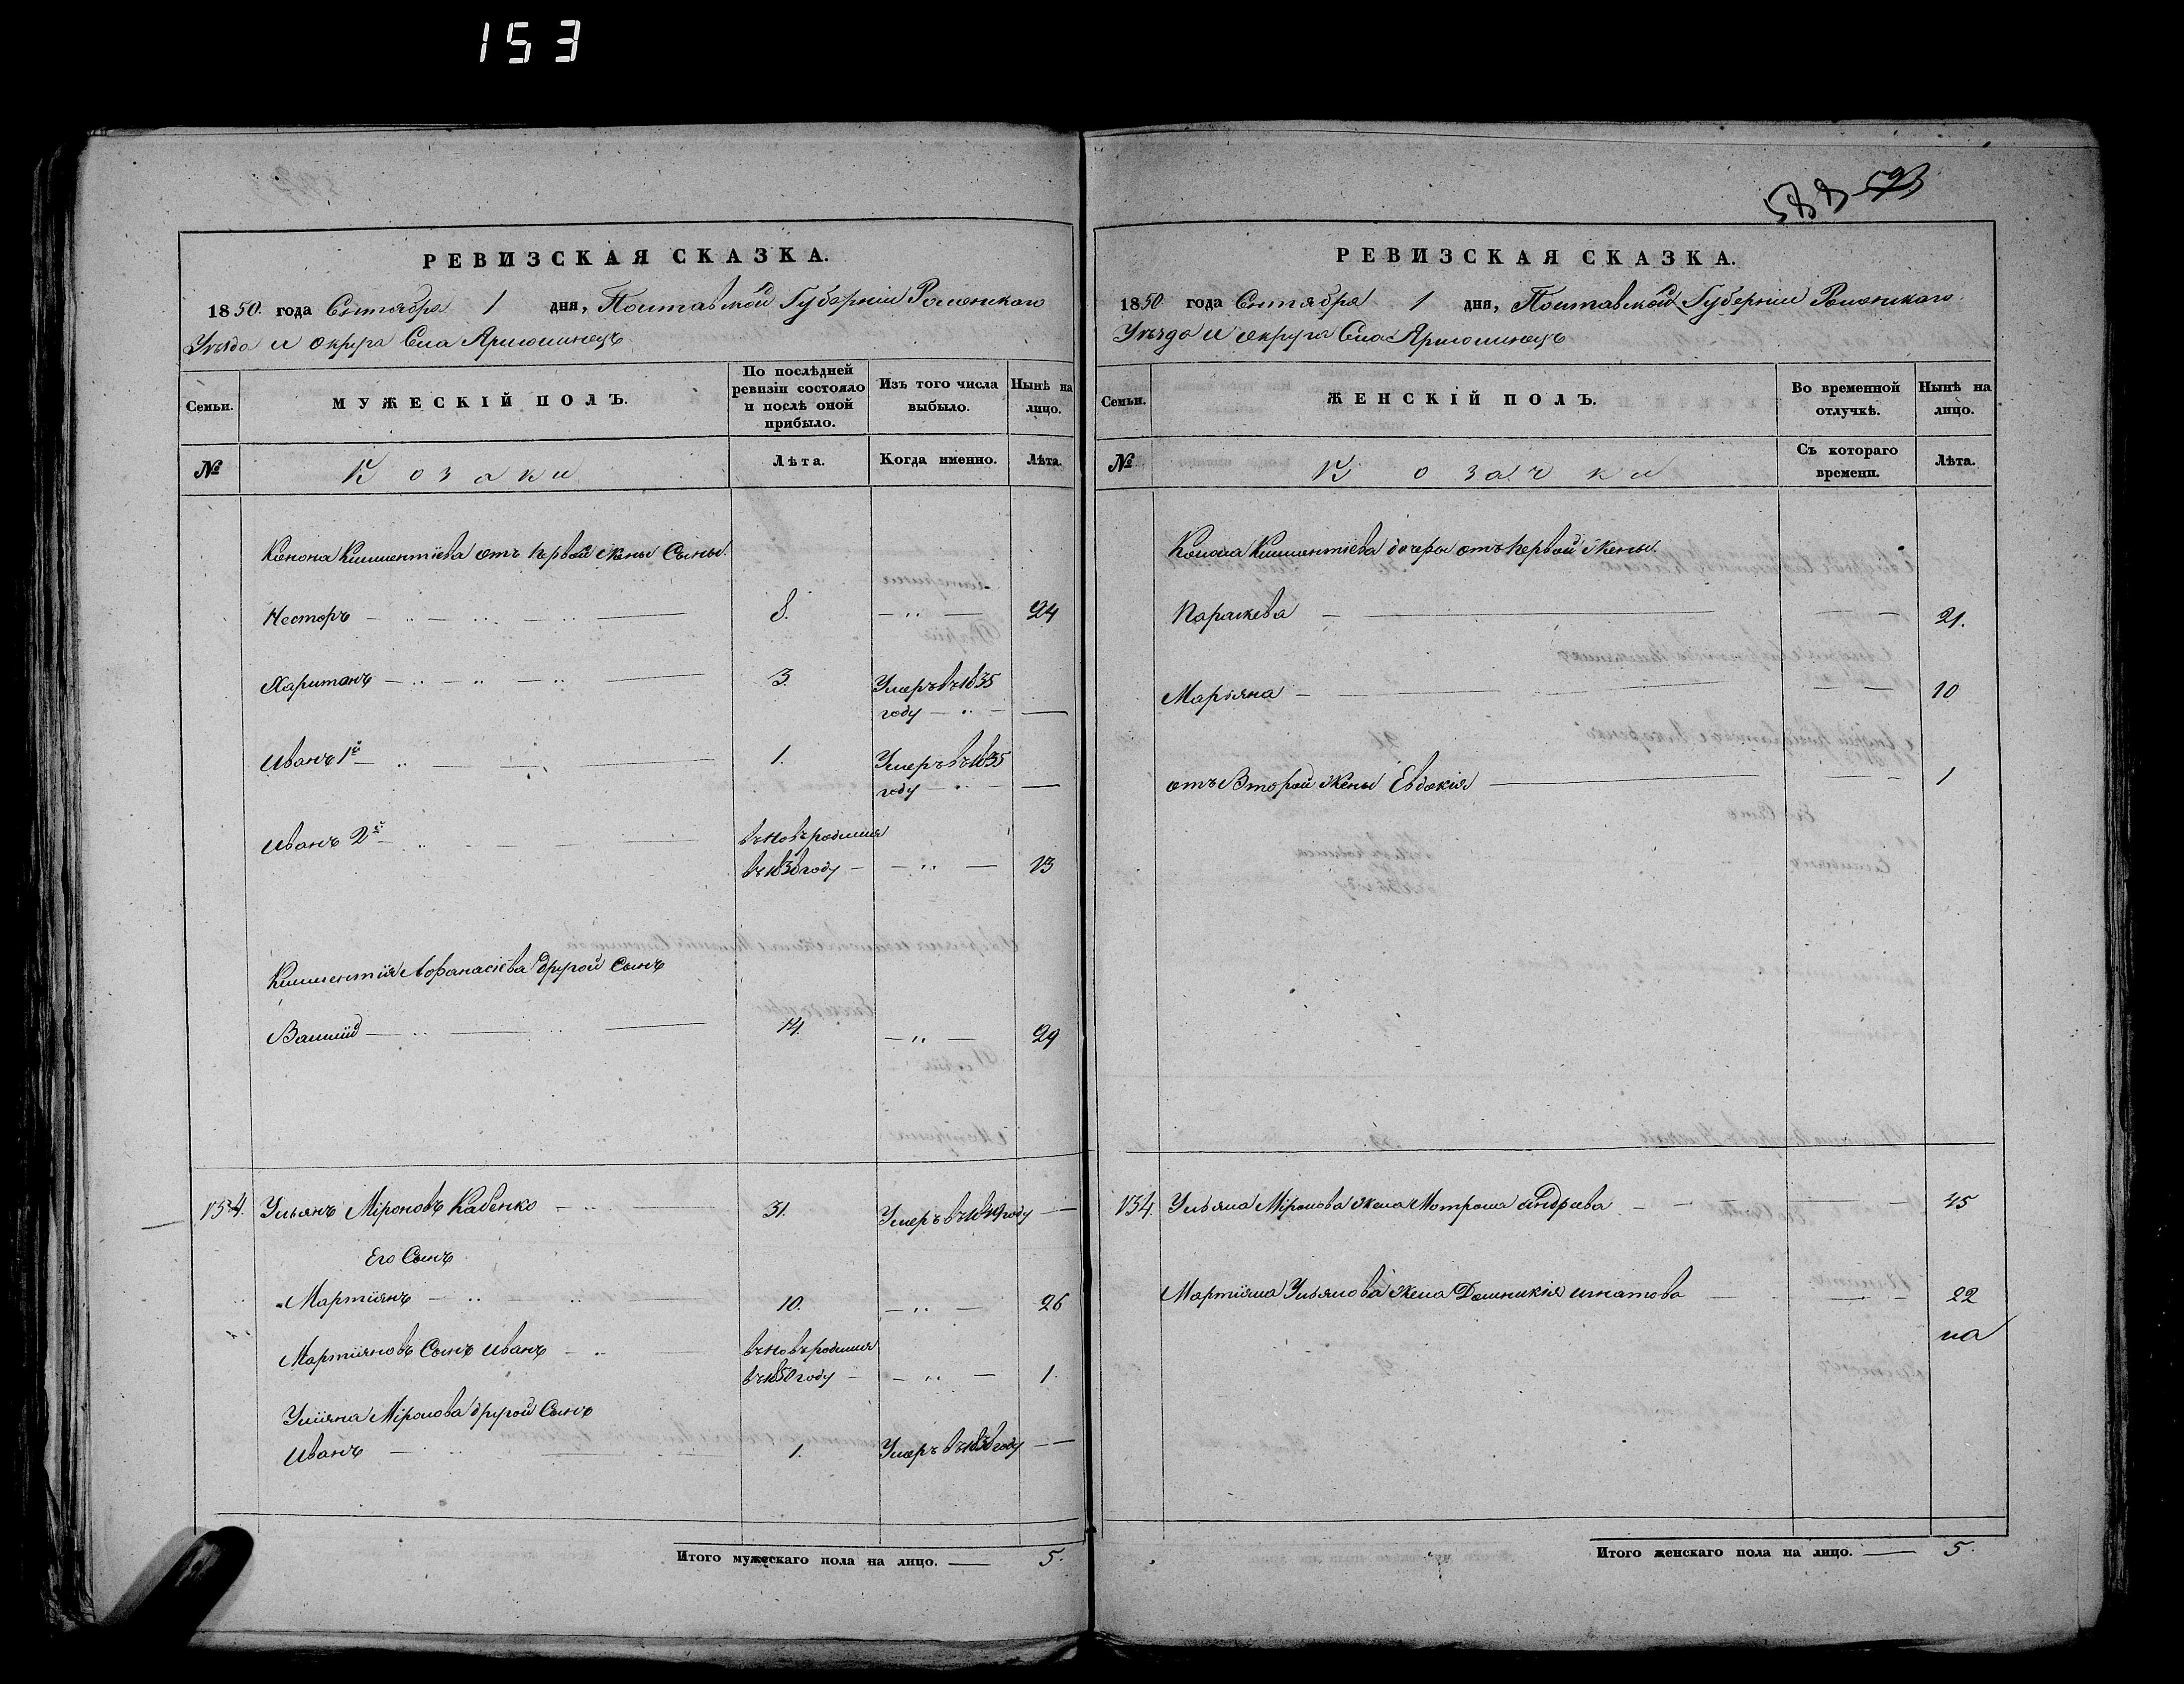 153
РЕВИЗСКАЯ СКАЗКА.
1850. года Сентября 1 дня, Полтавской Губерніи Роменскаго
Уѣзда и округа Села
Семьи.
МУЖЕСКІЙ ПОЛЪ.
По послѣдней ревизіи состояло и послѣ оной прибыло.
Изъ того числа выбыло.
Нынѣ на лицо.
№
Козаки
Лѣта.
Когда именно.
Лѣта.
Конона Климентіева отъ первой жены Сыны.
Несторъ 8. 24
Харитонъ 3. Умеръ въ 1835
году
Иванъ 1й 1. Умеръ въ 1835
году
Иванъ 2й въновь родился
въ 1838 году 13
Климентія Афанасіева другой Сынъ
Василій 14. 29
134. Ульянъ Міроновъ Кабенко 31. Умеръ въ 1849 году
Его Сынъ
Мартіянъ 10. 26
Мартіяновъ Сынъ Иванъ въновь родился
въ 1850 году 1.
Уліяна Міронова другой Сынъ
Иванъ 1. Умеръ въ 1838 году
Итого мужескаго пола на лицо. 5.
588 593
РЕВИЗСКАЯ СКАЗКА.
1850. года Сентября 1 дня, Полтавской Губерніи Роменскаго
Уѣзда и округа Села
Семьи.
ЖЕНСКІЙ ПОЛЪ.
Во временной отлучкѣ.
Нынѣ на лицо.
№
Козачки
Съ котораго времени.
Лѣта.
Конона Климентіева дочери отъ первой жены.
Параскева 21.
Маріяна 10
отъ Второй жены Евдокія 1
134. Ульяна Міронова жена Мотрона Андреева 45
Мартіяна Ульянова жена Домникія Игнатова 22
Итого женскаго пола на лицо. 5.